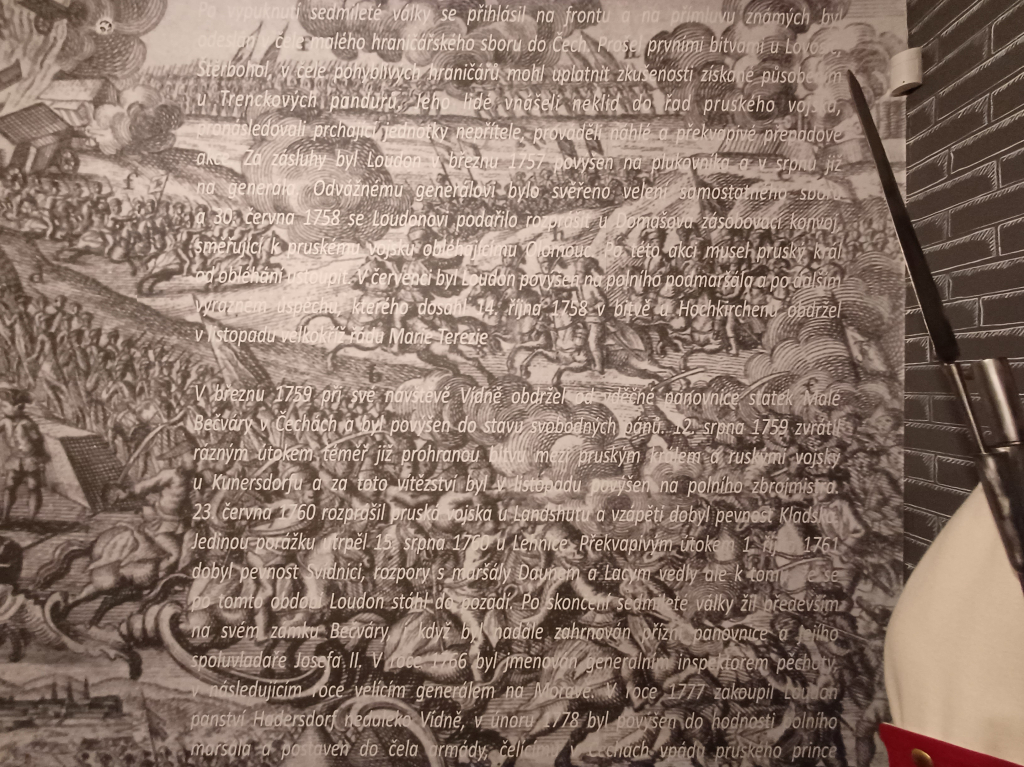 Po vypuknutí sedmileté války se přihlásil na frontu a na přímluvu známých byl
odeslán v čele malého hraničářského sboru do Čech. Prošel prvními bitvami u Lovosic,
Štěrbohol, v čele pohyblivých hraničářů mohl uplatnit zkušenosti získané působením
u Trenckových pandurů. Jeho lidé vnášeli neklid do řad pruského vojska,
pronásledovali prchající jednotky nepřítele, prováděli náhlé a překvapivé přepadové
akce. Za zásluhy byl Loudon v březnu 1757 povýšen na plukovníka a v srpnu již
na generála. Odvážnému generálovi bylo svěřeno velení samostatného sboru
a 30. června 1758 se Loudonovi podařilo rozprášit u Domašova zásobovací konvoj,
směřující k pruskému vojsku obléhajícímu Olomouc. Po této akci musel pruský král
od obléhání ustoupit. V červenci byl Loudon povýšen na polního podmaršála a po dalším
výrazném úspěchu, kterého dosáhl 14. října 1758 v bitvě u Hochkirchenu obdržel
v listopadu velkokříž řádu Marie Terezie
V březnu 1759 při své návštěvě Vídně obdržel od vděčné panovnice statek Malé
Bečváry v Čechách a byl povýšen do stavu svobodných pánů. 12. srpna 1759 zvrátil
rázným útokem téměř již prohranou bitvu mezi pruským králem a ruskými vojsky
u Kunersdorfu a za toto vítězství byl v listopadu povýšen na polního zbrojmistra.
23. června 1760 rozprášil pruská vojska u Landshutu a vzápětí dobyl pevnost Kladsko.
Jedinou porážku utrpěl 15. srpna 1760 u Lehnice. Překvapivým útokem 1. října 1761
dobyl pevnost Svídnici, rozpory s maršály Daunem a Lacym vedly ale k tomu, že se
po tomto období Loudon stáhl do pozadí. Po skončení sedmileté války žil především
na svém zámku Bečváry, i když byl nadále zahrnován přízní panovnice a jejího
spoluvladaře Josefa II. V roce 1766 byl jmenován generálním inspektorem pěchoty,
v následujícím roce velícím generálem na Moravě. V roce 1777 zakoupil Loudon
panství Hadersdorf nedaleko Vídně, v únoru 1778 byl povýšen do hodnosti polního
maršála a postaven do čela armády, čelícímu v Čechách vpádu pruského prince